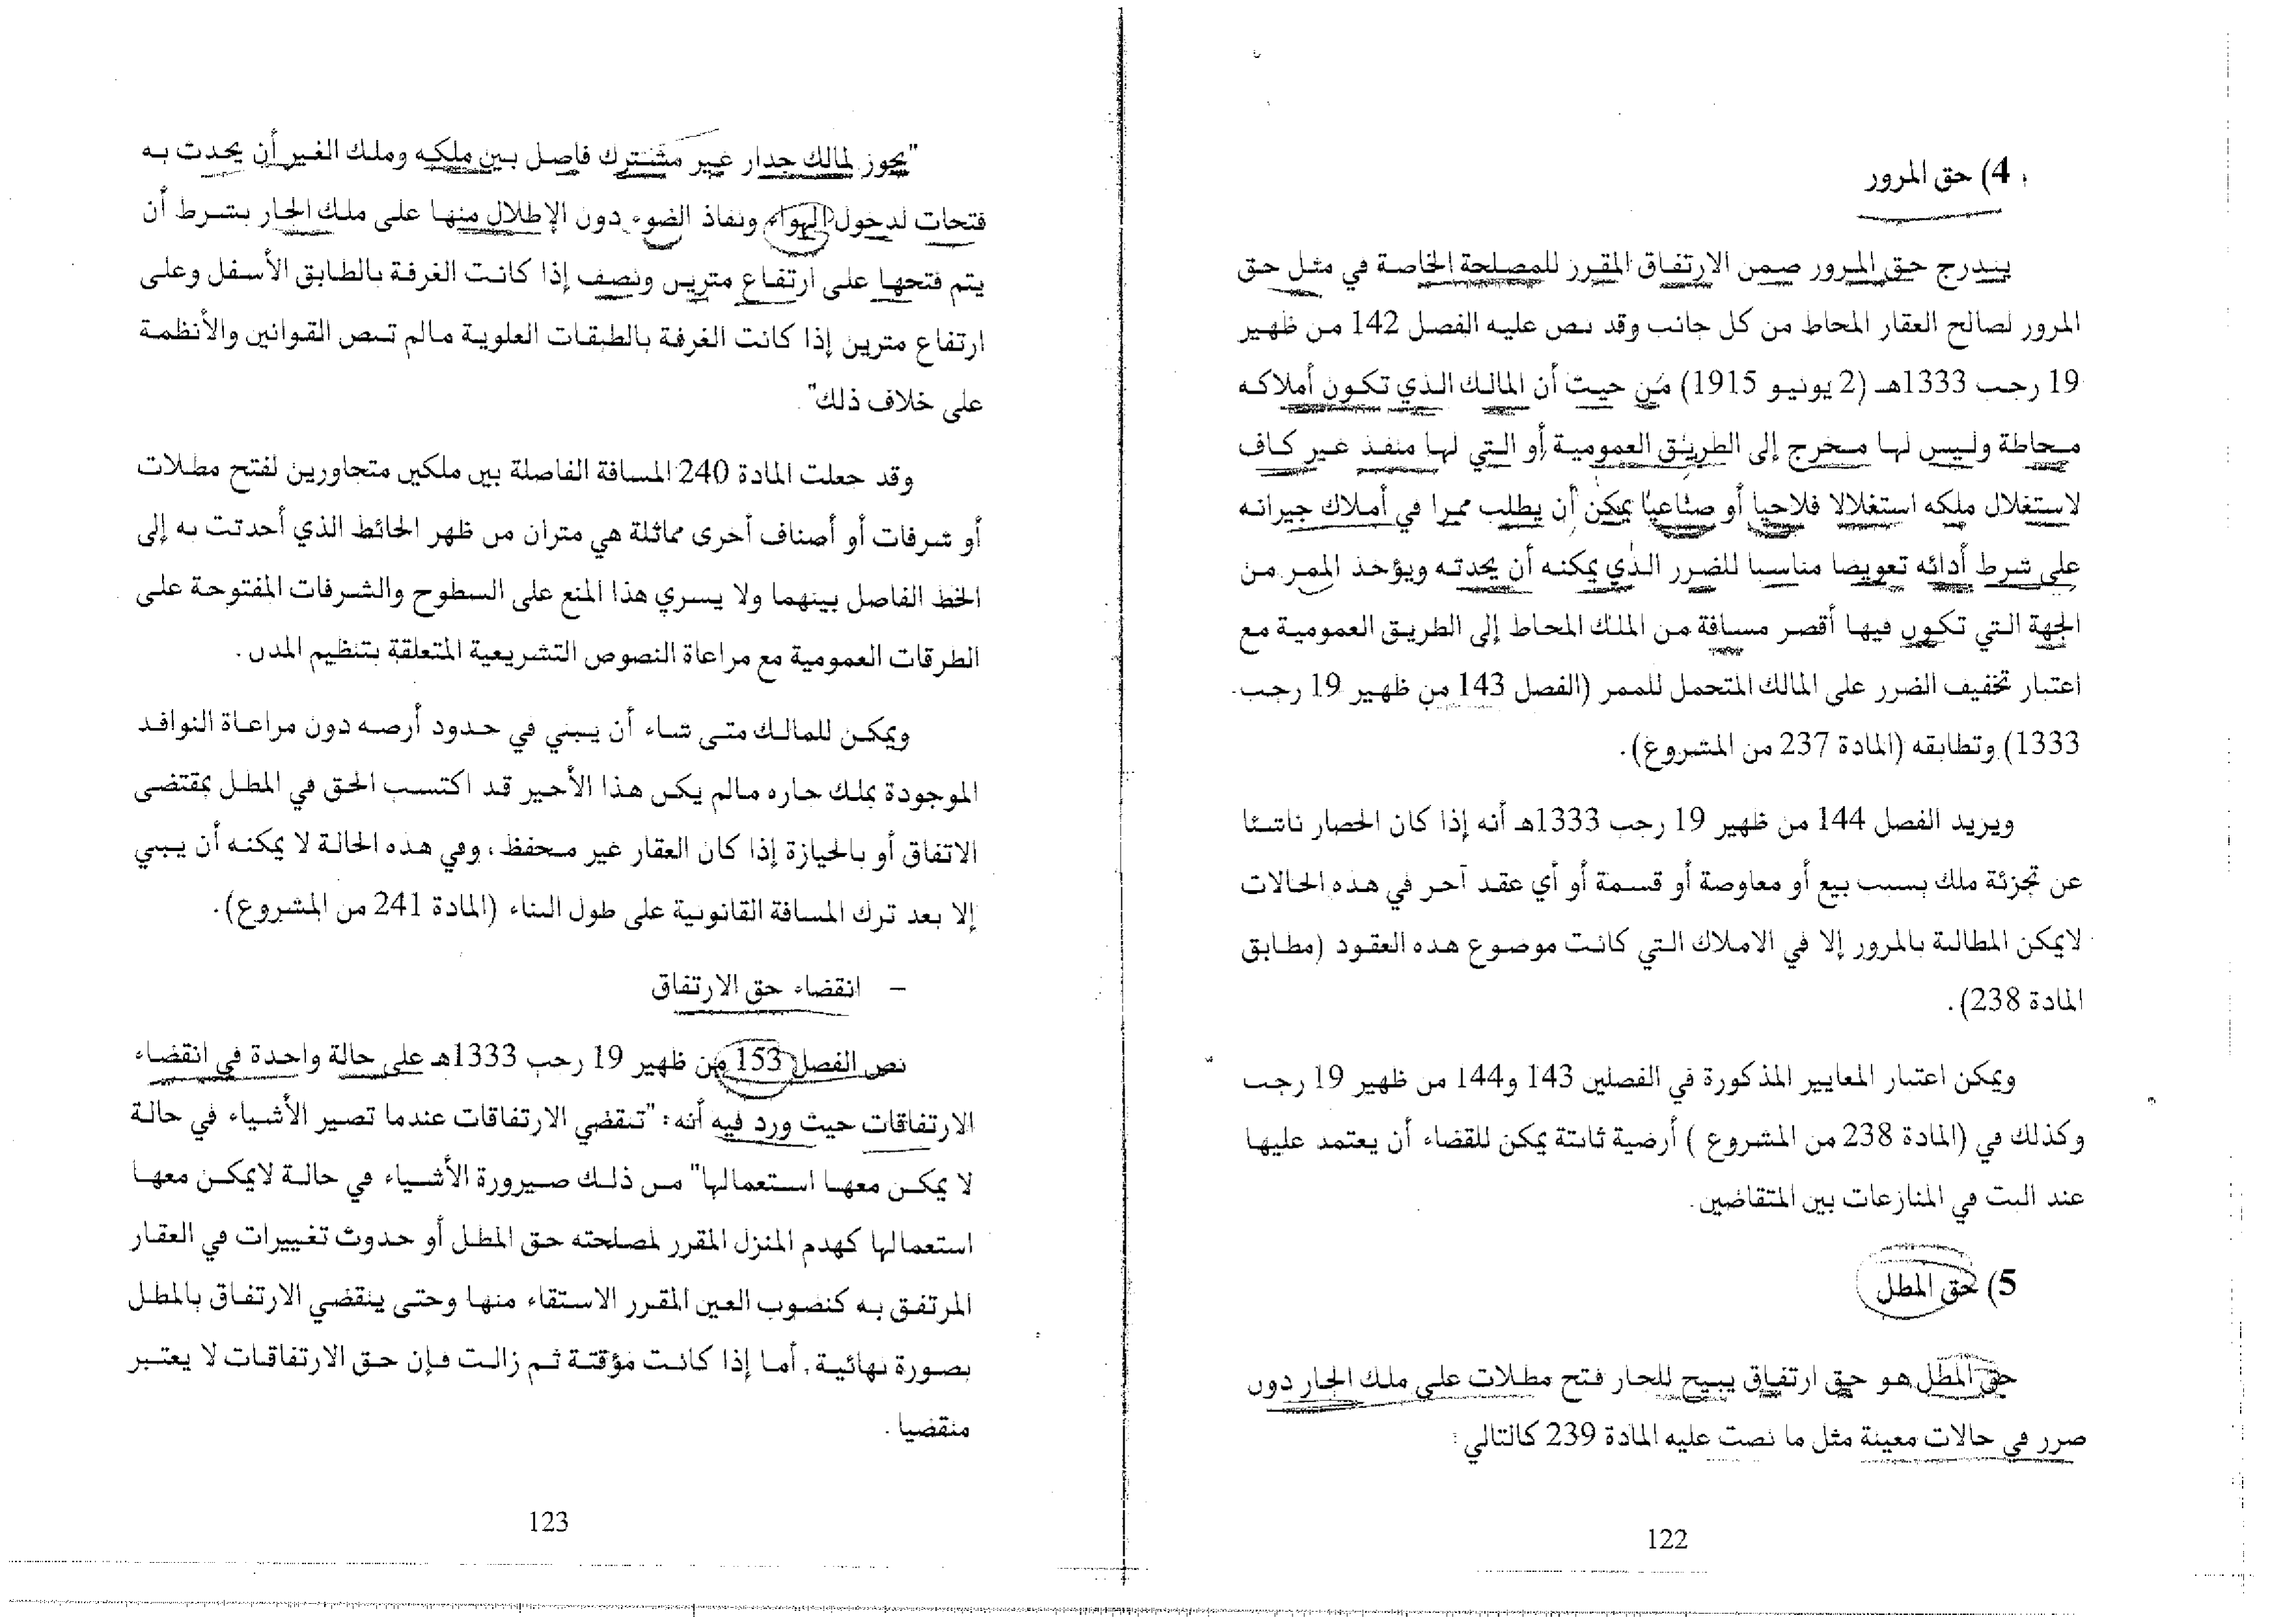 4) حق المرور
يندرج حق المرور ضمن الارتفاق المقرر للمصلحة الخاصة في مثل حق
المرور لصالح العقار المحاط من كل جانب وقد نص عليه الفصل 142 من ظهير
19 رجب 1333هـ (2 يونيو 1915) من حيث أن المالك الذي تكون أملاكه
محاطة وليس لها مخرج إلى الطريق العمومية أو التي لها منفذ غير كاف
لاستغلال ملكه استغلالا فلاحيا أو صناعيا يمكن أن يطلب ممرا في أملاك جيرانه
على شرط أدائه تعويضا مناسبا للضرر الذي يمكنه أن يحدثه ويؤخذ الممر من
الجهة التي تكون فيها أقصر مسافة من الملك المحاط إلى الطريق العمومية مع
اعتبار تخفيف الضرر على المالك المتحمل للممر (الفصل 143 من ظهير 19 رجب
1333) وتطابقه (المادة 237 من المشروع).
ويزيد الفصل 144 من ظهير 19 رجب 1333هـ أنه إذا كان الحصار ناشئا
عن تجزئة ملك بسبب بيع أو معاوضة أو قسمة أو أي عقد آخر في هذه الحالات
لايمكن المطالبة بالمرور إلا في الاملاك التي كانت موضوع هذه العقود (مطابق
المادة 238).
ويمكن اعتبار المعايير المذكورة في الفصلين 143 و144 من ظهير 19 رجب
وكذلك في (المادة 238 من المشروع ) أرضية ثابتة يمكن للقضاء أن يعتمد عليها
عند البت في المنازعات بين المتقاضين.
5) حق المطل
حق المطل هو حق ارتفاق يبيح للجار فتح مطلات على ملك الجار دون
ضرر في حالات معينة مثل ما نصت عليه المادة 239 كالتالي:
122
"يجوز لمالك جدار غير مشترك فاصل بين ملكه وملك الغير أن يحدث به
فتحات لدخول الهواء ونفاذ الضوء دون الإطلال منها على ملك الجار بشرط أن
يتم فتحها على ارتفاع مترين ونصف إذا كانت الغرفة بالطابق الأسفل وعلى
ارتفاع مترين إذا كانت الغرفة بالطبقات العلوية مالم تنص القوانين والأنظمة
على خلاف ذلك".
وقد جعلت المادة 240 المسافة الفاصلة بين ملكين متجاورين لفتح مطلات
أو شرفات أو أصناف أخرى مماثلة هي متران من ظهر الحائط الذي أحدثت به إلى
الخط الفاصل بينهما ولا يسري هذا المنع على السطوح والشرفات المفتوحة على
الطرقات العمومية مع مراعاة النصوص التشريعية المتعلقة بتنظيم المدن.
ويمكن للمالك متى شاء أن يبني في حدود أرضه دون مراعاة النوافد
الموجودة بملك جاره مالم يكن هذا الأخير قد اكتسب الحق في المطل بمقتضى
الاتفاق أو بالحيازة إذا كان العقار غير محفظ، وفي هذه الحالة لا يمكنه أن يبني
إلا بعد ترك المسافة القانونية على طول البناء (المادة 241 من المشروع).
- انقضاء حق الارتفاق
نص الفصل 153 من ظهير 19 رجب 1333هـ على حالة واحدة في انقضاء
الارتفاقات حيث ورد فيه أنه: "تنقضي الارتفاقات عندما تصير الأشياء في حالة
لا يمكن معها استعمالها" من ذلك صيرورة الأشياء في حالة لايمكن معها
استعمالها كهدم المنزل المقرر لمصلحته حق المطل أو حدوث تغييرات في العقار
المرتفق به كنضوب العين المقرر الاستقاء منها وحتى ينقضي الارتفاق بالمطل
بصورة نهائية، أما إذا كانت مؤقتة ثم زالت فإن حق الارتفاقات لا يعتبر
منقضيا.
123